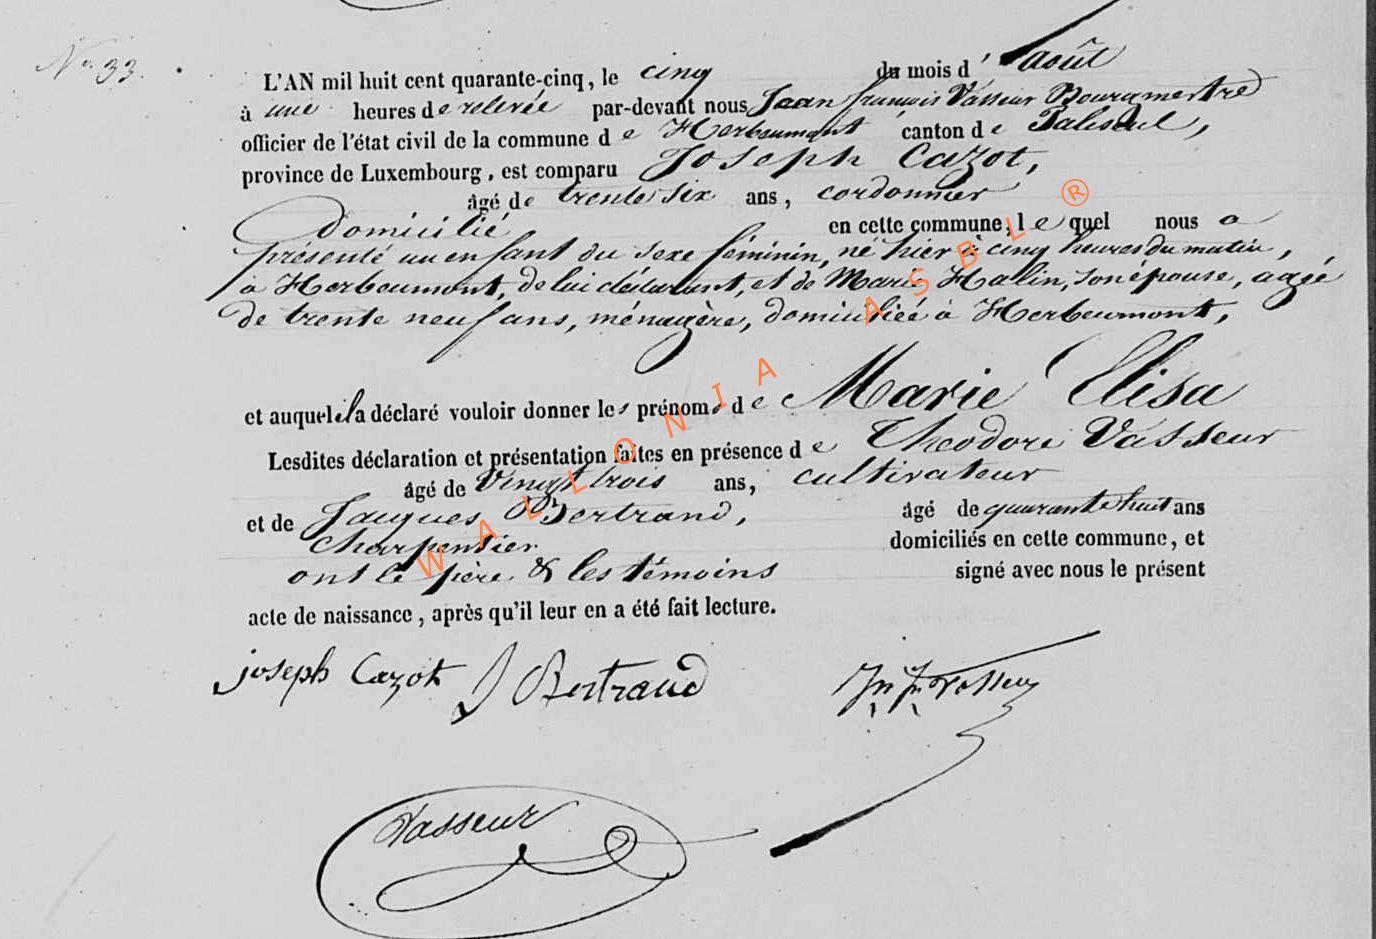 No. 33.
L'AN mil huit cent quarante-cinq, le cinq du mois d'août
à une heures de relevée par-devant nous Jean françois Vasseur Bourgmestre
officier de l'état civil de la commune de Herbeumont canton de Paliseul,
province de Luxembourg, est comparu Joseph Cazot,
âgé de trente six ans, cordonnier
domicilié en cette commune, lequel nous a
présenté un enfant du sexe féminin, né hier à cinq heures du matin,
à Herbeumont, de lui déclarant, et de Marie Halin, son épouse, agée
de trente neuf ans, ménagère, domiciliée à Herbeumont,
et auquel il a déclaré vouloir donner les prénoms de Marie Elisa
Lesdites déclaration et présentation faites en présence de Théodore Vasseur
âgé de Vingt trois ans, cultivateur
et de Jacques Bertrand, âgé de quarante huit ans
charpentier domiciliés en cette commune, et
ont le père & les témoins signé avec nous le présent
acte de naissance, après qu'il leur en a été fait lecture.
joseph Cazot J Bertrand Jn Fs Vasseur
Vasseur
WALLONIA ASBL ®